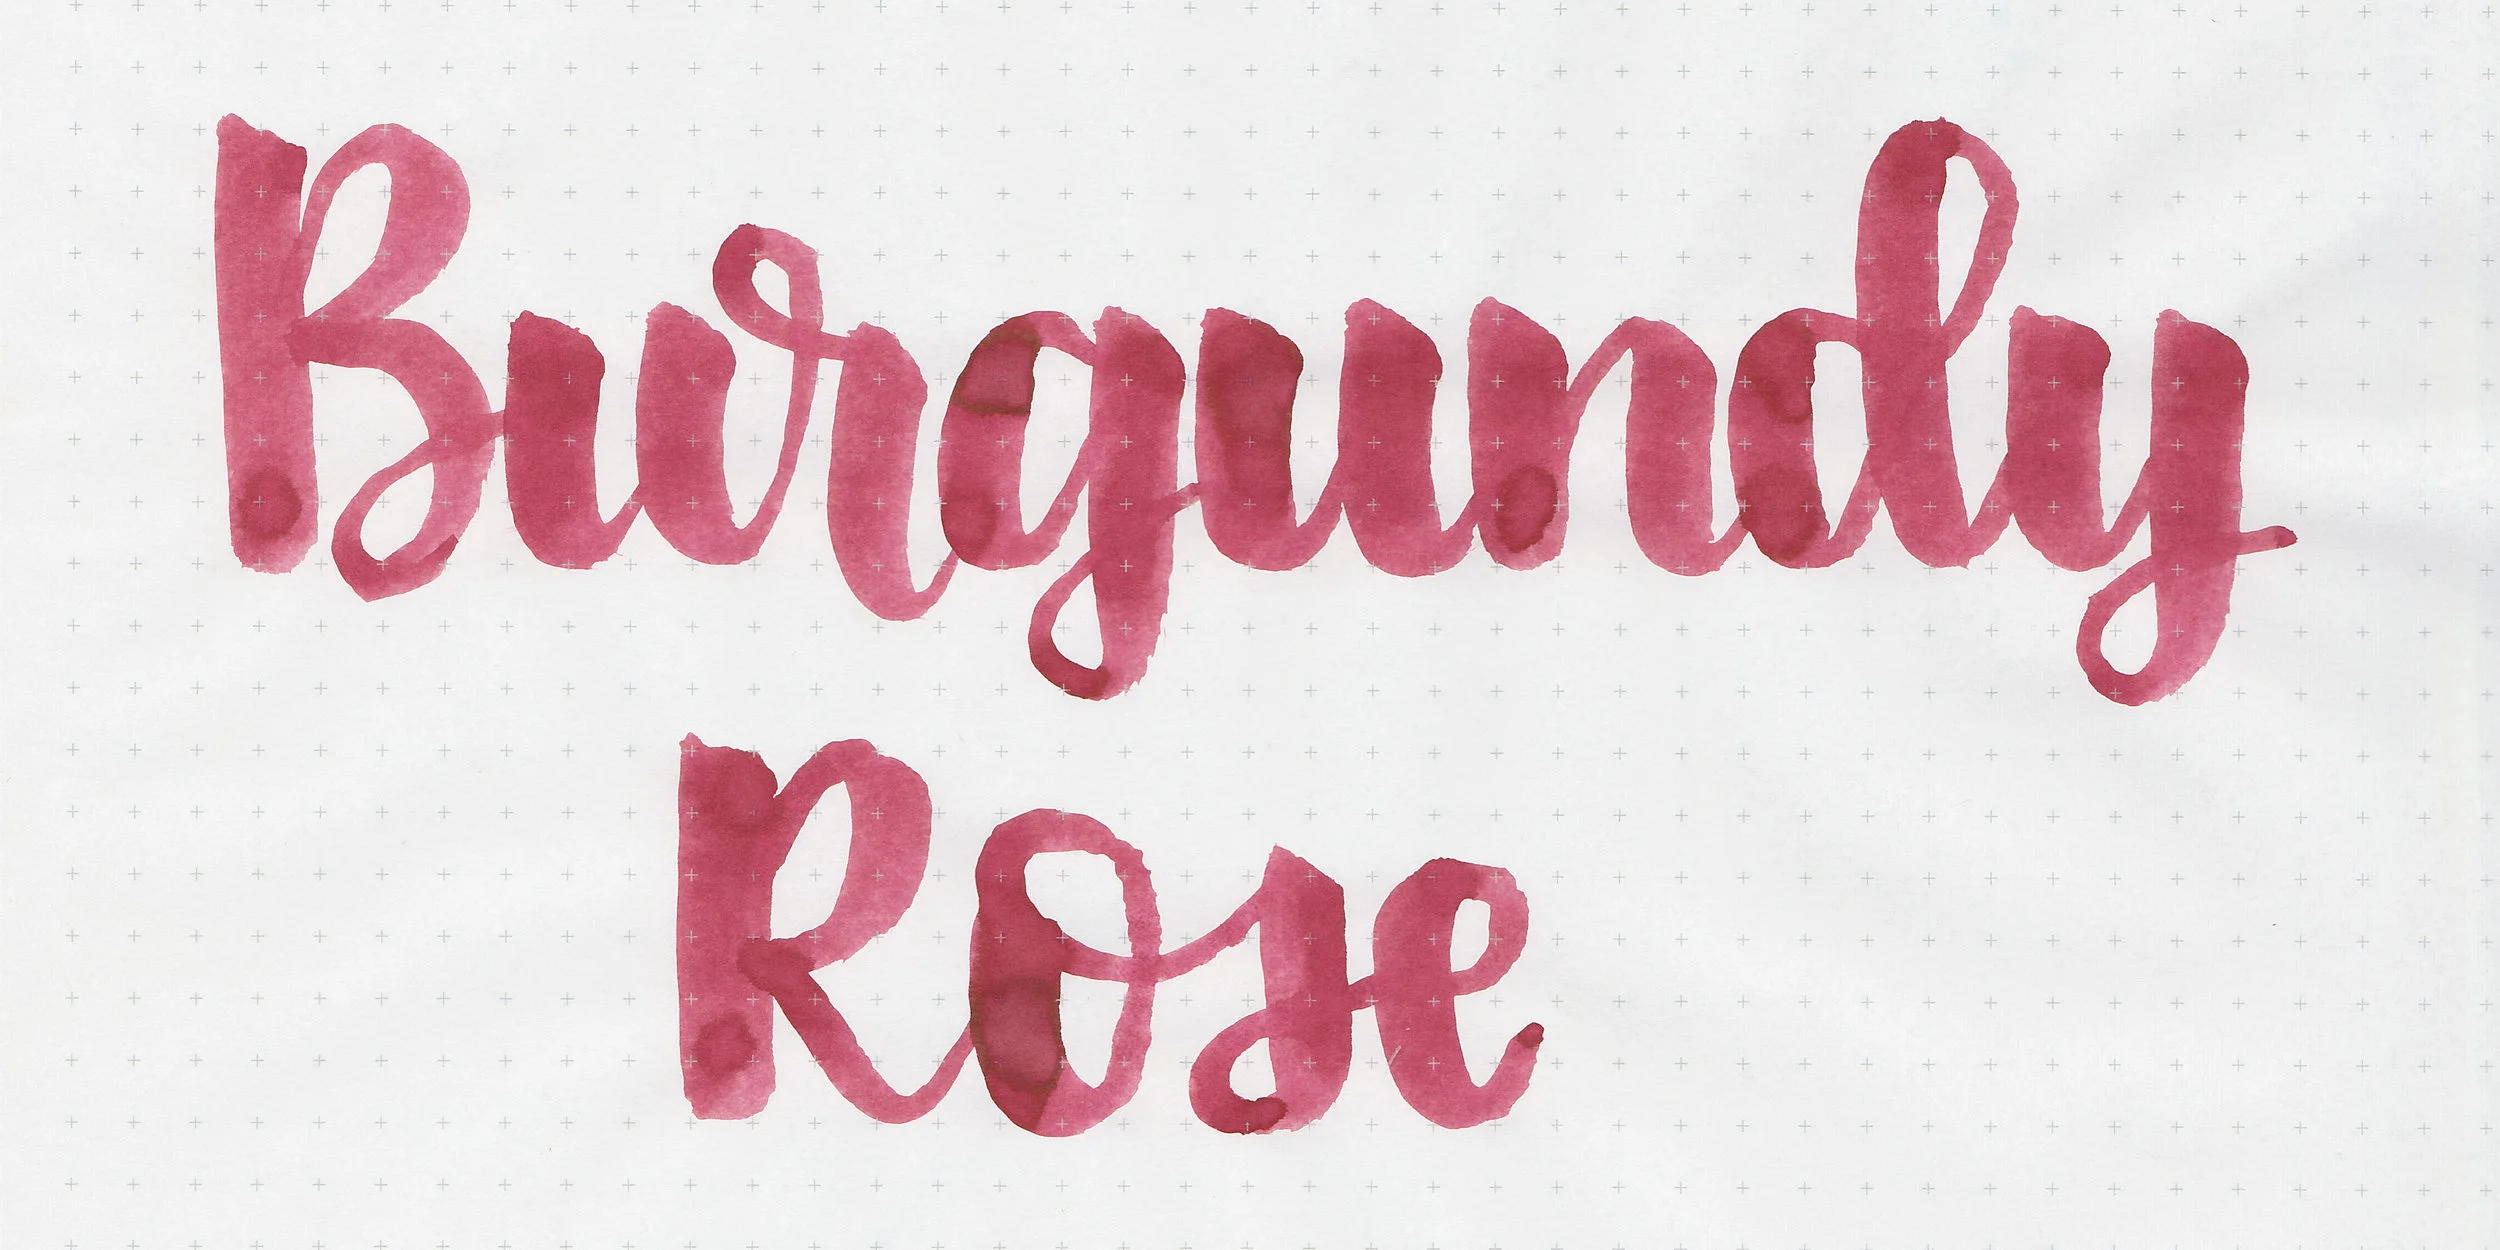 Burgundy
Rose